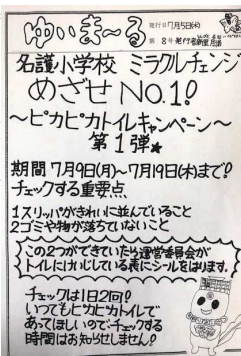 ゆいまーる
発行日7月5日(木)
第 8号 発行者
名護小学校 ミラクルチェンジ
めざせ NO.1!
〜ピカピカトイルキャンペーン〜
第1弾★
期間 7月9日(月)〜7月19日(木)まで!
チェックする重要点
1スリッパがきれいに並んでいること
2ゴミや物が落ちていないこと
この2つができていたら運営委員会が
トイレにけいじしている表にシールをはります。
チェックは1日2回!
いつもピカピカトイレで
あってほしいのでチェックする
時間はお知らせしません!